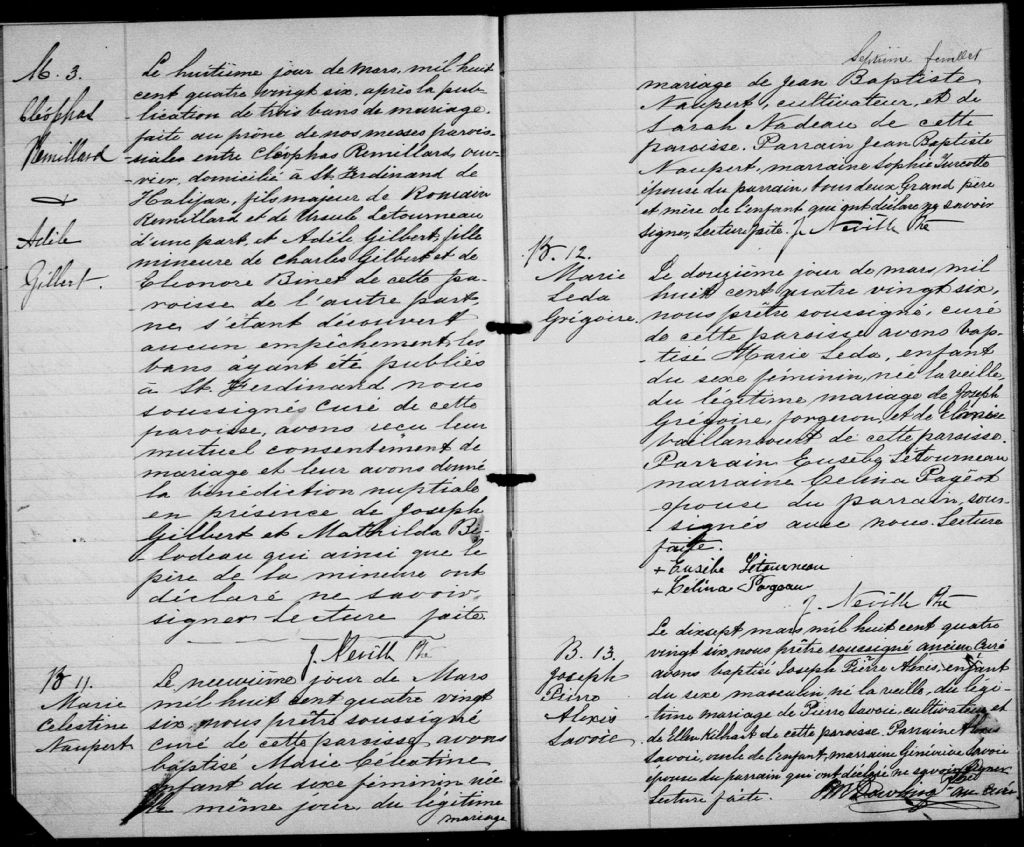 M. 3.
Cléophas
Remillard
&
Adèle
Gillert.
Le huitième jour de Mars, mil huit
cent quatre vingt six, après la pub-
-lication de trois bans de mariage,
faite au prône de nos messes parois-
-siales entre Cléophas Remillard, ouv-
-rier, domicilié à St. Ferdinand de
Halifax, fils majeur de Romain
Remillard et de Ursule Létourneau
d'une part, et Adèle Gilbert, fille
mineure de Charles Gilbert et de
Eleonore Binet de cette pa-
-roisse de l'autre part
ne s'étant découvert
aucun empêchement, les
bans ayant été publiés
à St. Ferdinand nous
soussignés Curé de cette
paroisse, avons reçu leur
mutuel consentement de
mariage et leur avons donné
la bénédiction nuptiale
en présence de Joseph
Gilbert et Mathilda Bi-
-lodeau qui ainsi que le
père de la mineure ont
déclaré ne savoir
signer Lecture faite.
J. Neville Ptre
B 11.
Marie
Celestine
Naupert
Le neuvième jour de Mars
mil huit cent quatre vingt
six, nous prêtre soussigné
curé de cette paroisse, avons
baptisé Marie Celestine
enfant du sexe féminin née
le même jour, du légitime
mariage
Septième feuillet
mariage de Jean Baptiste
Naupert, cultivateur, et de
Sarah Nadeau de cette
paroisse. Parrain Jean Baptiste
Naupert, marraine Sophie Turcotte
épouse du parrain, tous deux Grand père
et mère de l'enfant qui ont déclaré ne savoir
signer, Lecture faite. J. Neville Ptre
B. 12.
Marie
Leda
Grégoire.
Le douzième jour de mars, mil
huit cent quatre vingt six,
nous prêtre soussigné, curé
de cette paroisse avons bap-
-tisé Marie Leda, enfant
du sexe féminin, née la veille,
du légitime mariage de Joseph
Grégoire, forgeron, et de
Vaillancourt de cette paroisse.
Parrain Eusèbe Létourneau
marraine Celina Pagéot
épouse du parrain, sous-
-signés avec nous. Lecture
faite.
+ Eusèbe Létourneau
+ Célina Pageau
J. Neville Ptre
B. 13.
Joseph
Pierre
Alexis
Savoie
Le dixsept mars mil huit cent quatre
vingt six, nous prêtre soussigné ancien Curé
avons baptisé Joseph Pierre Alexis, enfant
du sexe masculin, né la veille, du légi-
-time mariage de Pierre Savoie, cultivateur et
de Ellen Kilhart de cette paroisse. Parrain Alexis
Savoie, oncle de l'enfant, marraine Généviève Savoie
épouse du parrain qui ont déclaré ne savoir signer
Lecture faite.